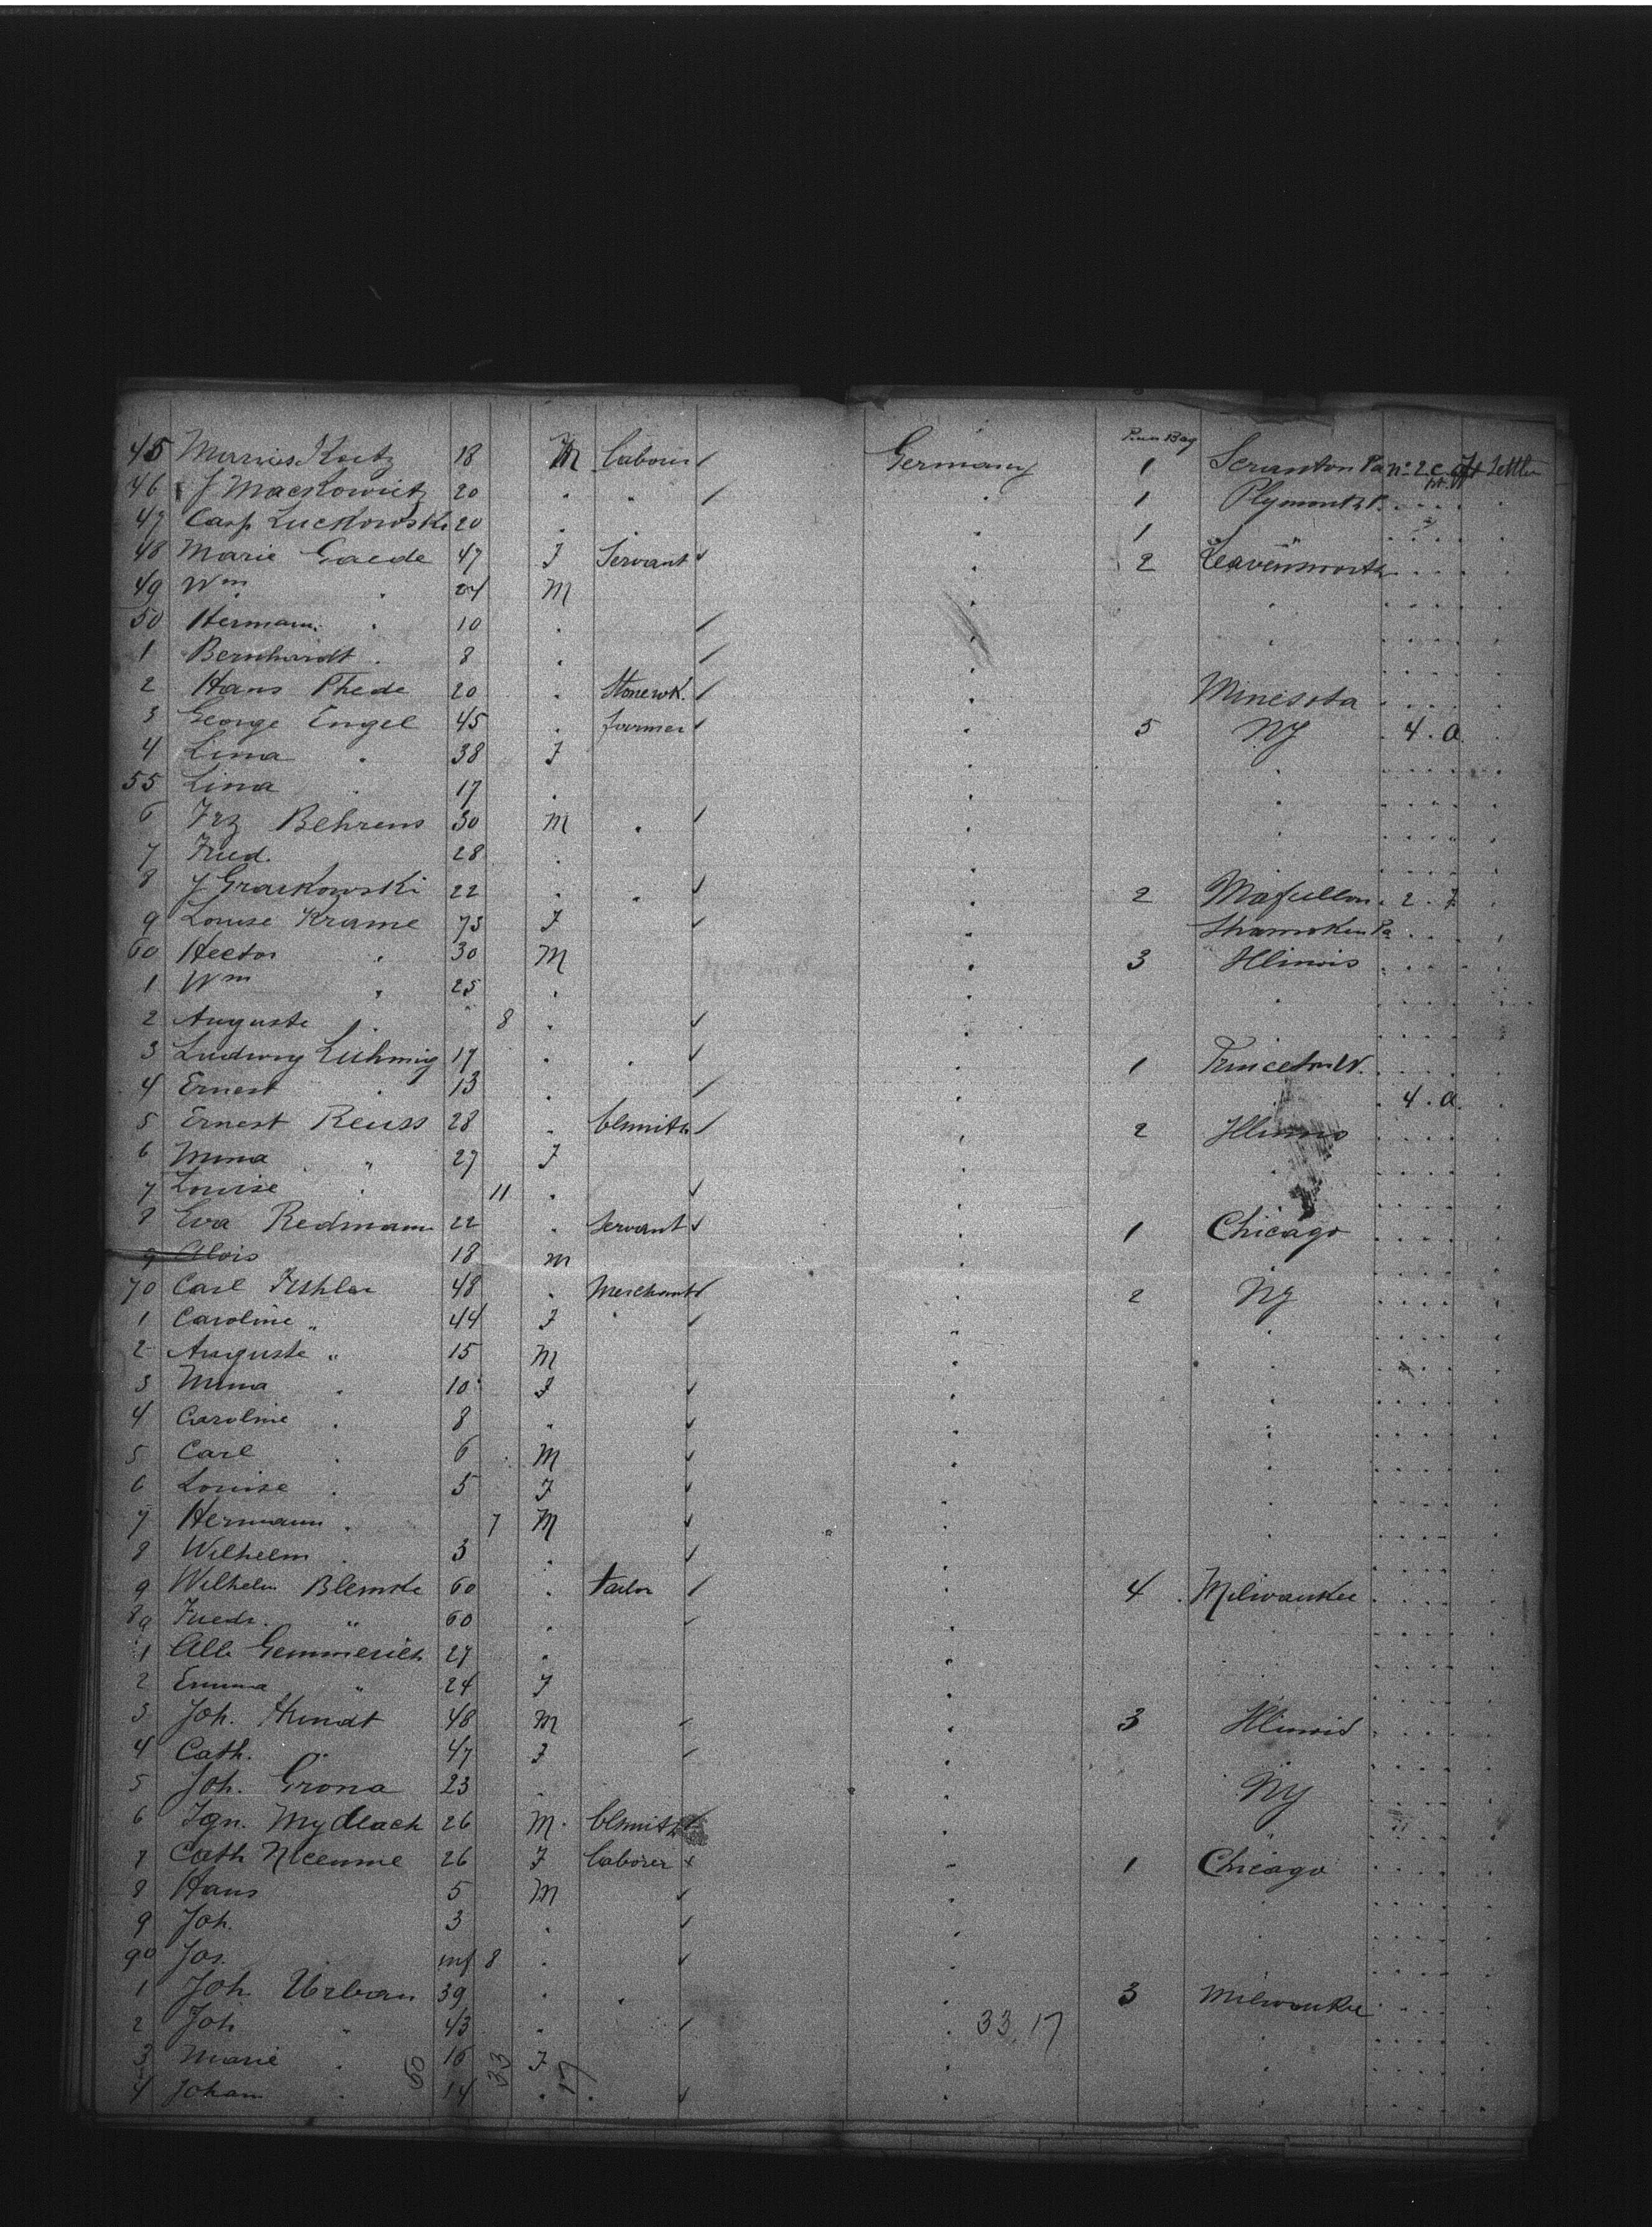 Pieces Bag
45 18 M Laborer Germany 1 Scranton Pa No 2 C Settler
46 J Mackowietz 20 " " 1 Plymouth P.
47 Casp Luckowski 20 1 "
48 Marie Gaede 47 F Servant 2 Leavensworth
49 Wm " 24 M
50 Hermann " 10
1 Bernhardt " 8
2 Hans Thede 20 " Stonewk. Minesota
3 George Engel 45 " farmer 5 NY 4. a.
4 Lina " 38 F
55 Lina " 17
6 Frz Behrens 30 M "
7 Fried. 28
8 J Graikowski 22 " " 2 2.
9 Louise Krame 73 F Shamokin Pa
60 Hector " 30 M 3 Illinois
1 Wm " 25 "
2 Auguste " 8 "
3 Ludwig Luhmig 17 " " 1 Princeton W.
4 Ernest " 13 " 4. a.
5 Ernest Reuss 28 " blsmith 2 Illinois
6 Mina " 27 F
7 Louise " 11 "
8 Eva Redmann 22 " Servant 1 Chicago
9 Alois 18 M
70 Carl 48 " Merchant 2 NY
1 Caroline " 44 F "
2 Auguste " 15 M
3 Mina " 10 F
4 Caroline " 8 "
5 Carl " 6 M
6 Louise " 5 F
7 Hermann " 7 M
8 Wilhelm " 3 "
9 Wilhelm Blemke 60 " tailor 4 Milwaukee
80 Friedr. " 60 "
1 Alb Gemmerich 27 "
2 Emma " 24 F
3 Joh. 48 M 3 Illinois
4 Cath. " 47 F
5 Joh. Grona 23 " NY
6 Ign. Mydlach 26 M blsmith "
7 Cath 26 F laborer 1 Chicago
8 Hans 5 M
9 Joh. 3 "
90 Jos. inf 8 "
1 Joh. Urban 39 " " 3 Milwaukee
2 Joh " 43 " 33 17
3 Marie " 16 F
4 Johan " 14 "
60 33 17